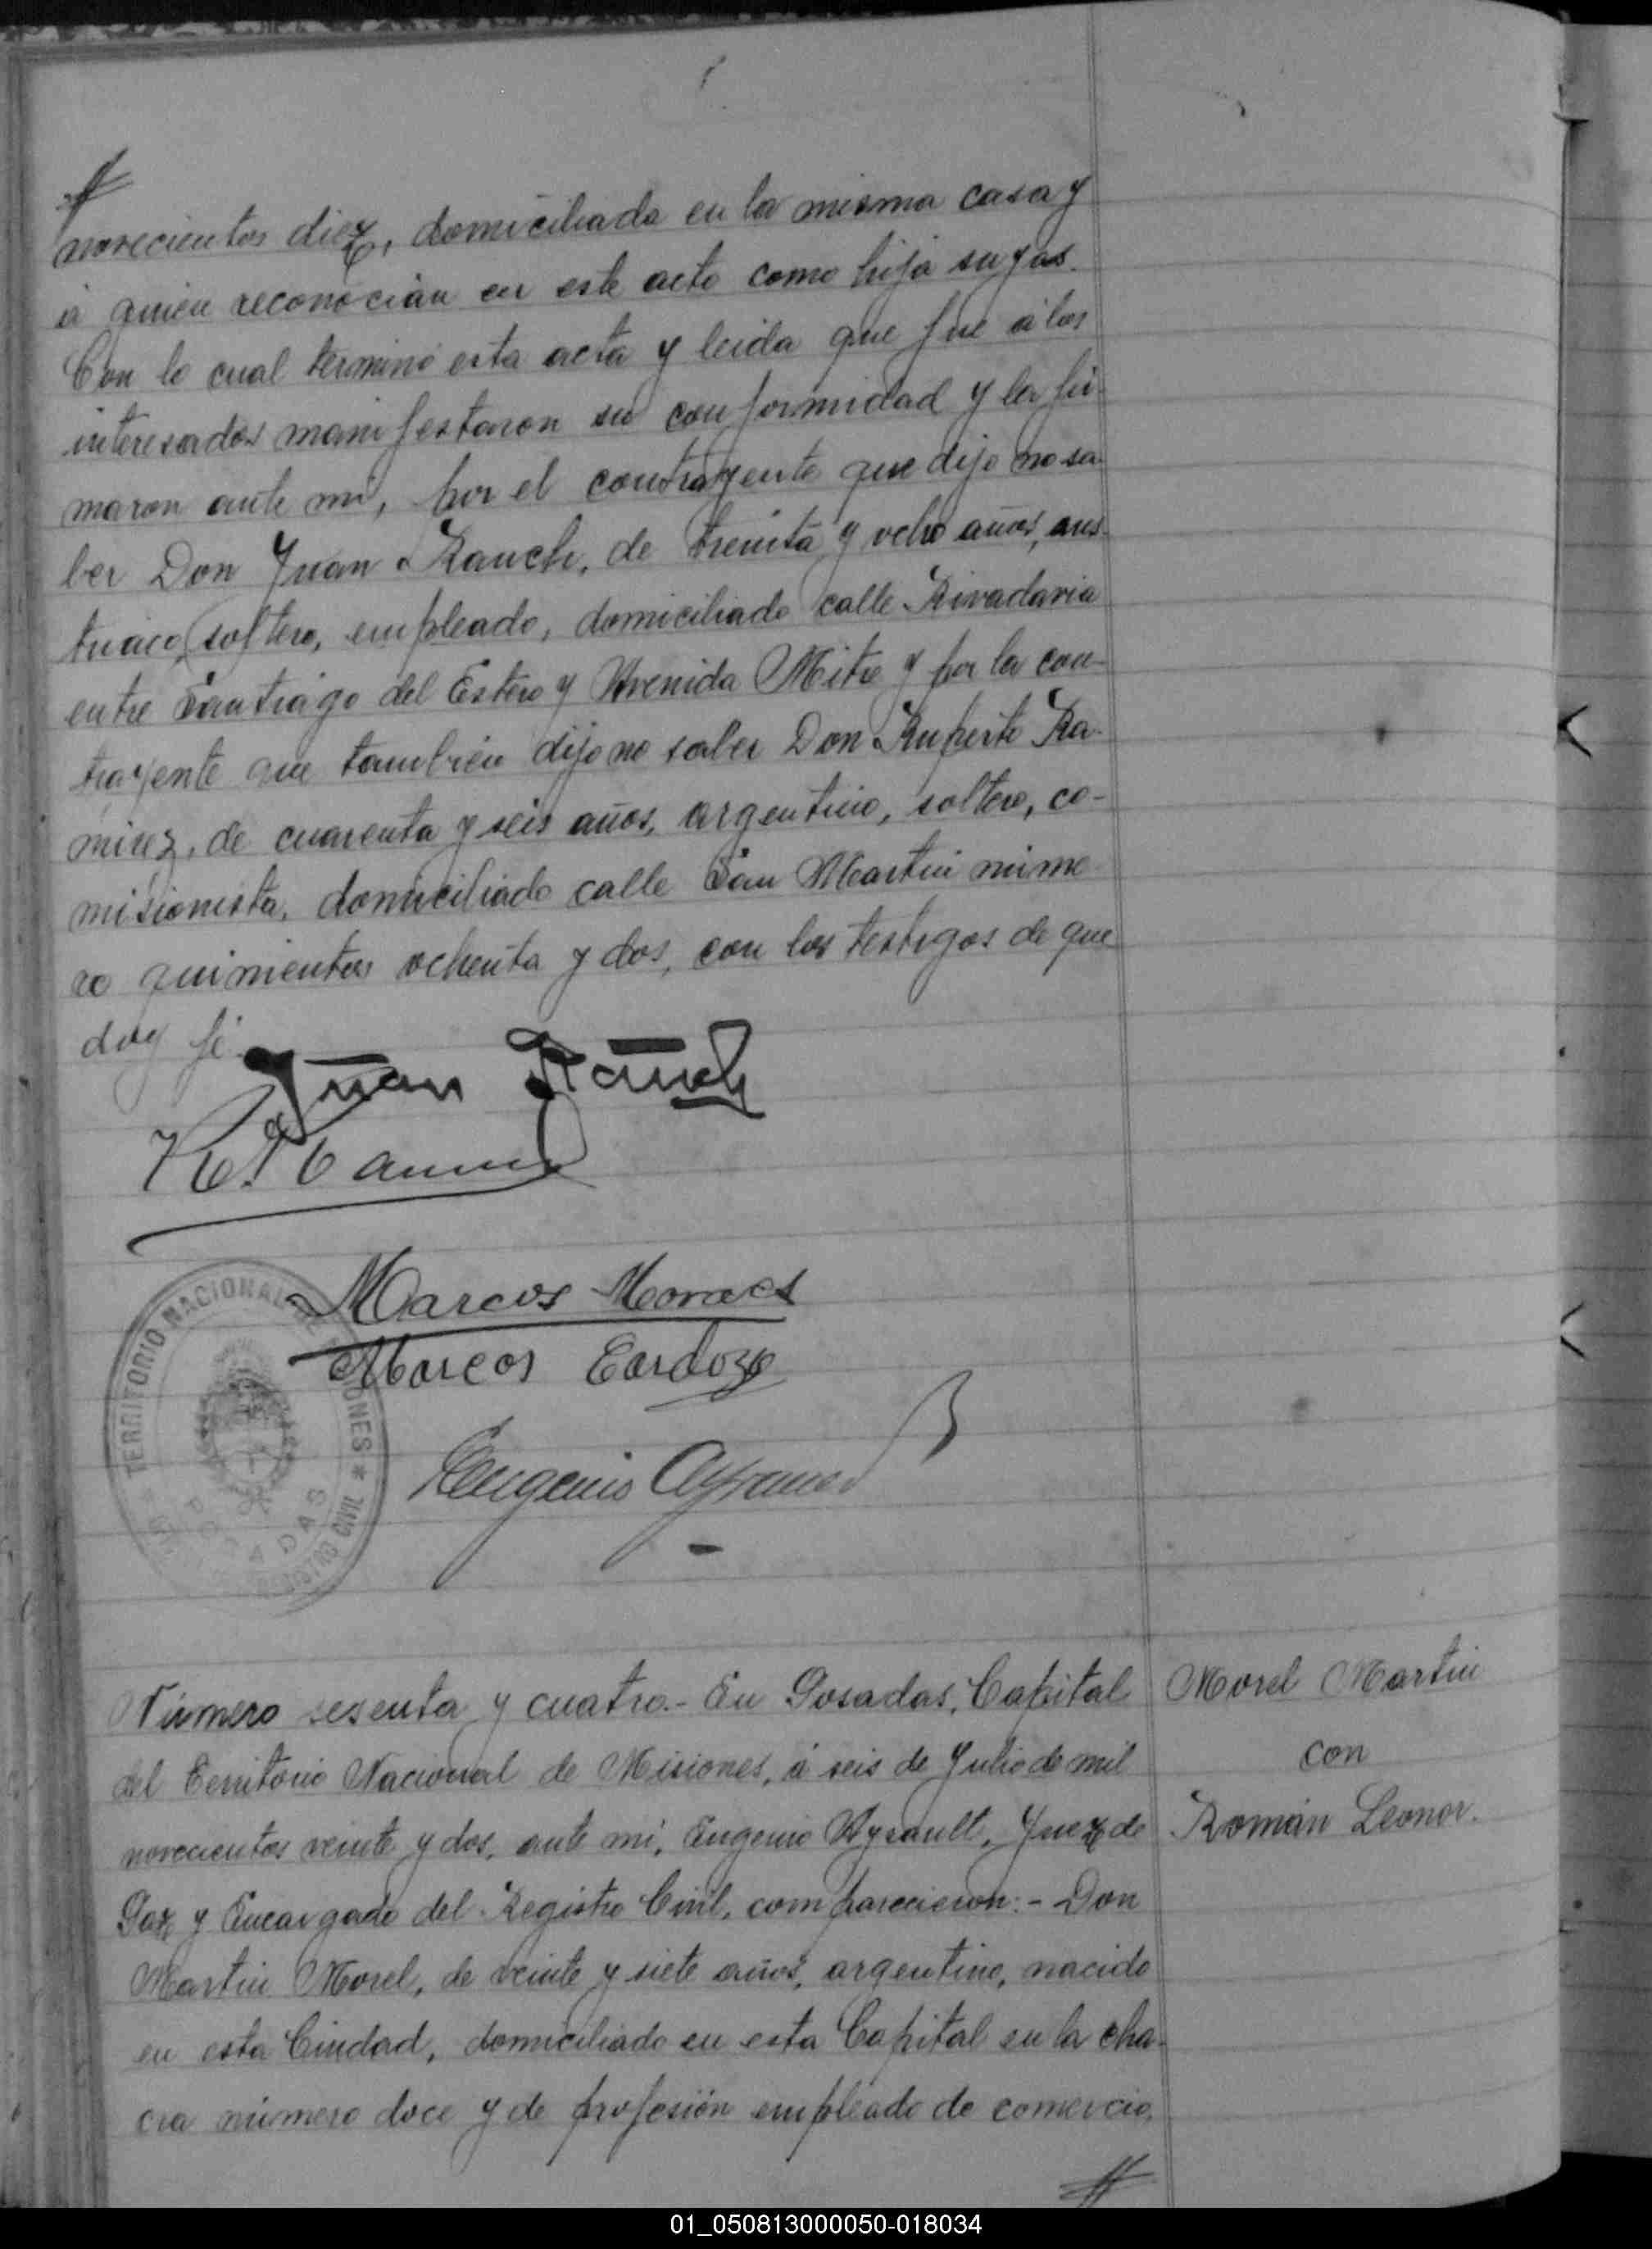 //
novecientos diez, domiciliada en la misma casa y
á quien reconocian en este acto como hija suyas.
Con lo cual terminó esta acta y leida que fue á los
interesados manifestaron su conformidad y la fir-
maron ante mi, por el contrayente que dijo no sa-
ber Don Juan Rauch, de treinta y ocho años, aus-
triaco, soltero, empleado, domiciliado calle Rivadavia
entre Santiago del Estero y Avenida Mitre y por la con-
trayente que tambien dijo no saber Don Ruperto Ra-
mirez, de cuarenta y seis años, argentino, soltero, co-
misionista, domiciliado calle San Martin núme-
ro quinientos ochenta y dos, con los testigos de que
doy fé.
Juan Rauch
Marcos Moraes
Marcos Cardozo
Eugenio Ayrault
TERRITORIO NACIONAL DE MISIONES
POSADAS
REGISTRO CIVIL
Número sesenta y cuatro.- En Posadas, Capital
del Territorio Nacional de Misiones, á seis de Julio de mil
novecientos veinte y dos, ante mi, Eugenio Ayrault, Juez de
Paz y Encargado del Registro Civil, comparecieron:- Don
Martin Morel, de veinte y siete años, argentino, nacido
en esta Ciudad, domiciliado en esta Capital en la cha-
cra número doce y de profesión empleado de comercio,
//
Morel Martin
con
Román Leonor.
01_050813000050-018034